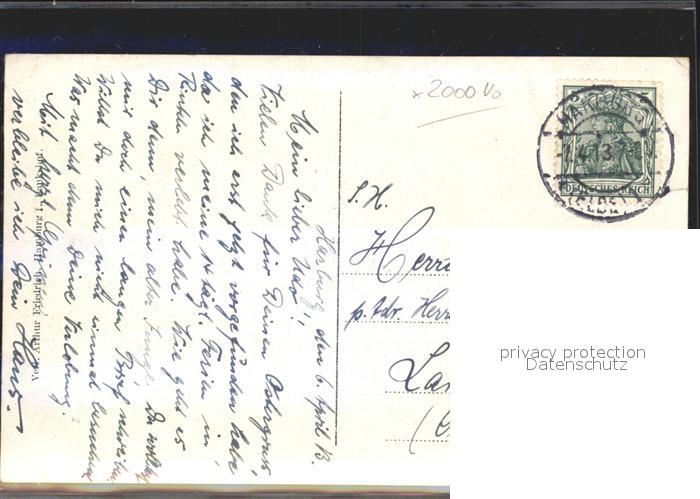 Harburg, den 6. April 13.
Mein lieber
Vielen Dank für Deinen Ostergruß
den ich erst jetzt vorgefunden habe
da ich meine 14 tägl. Ferien in
verlebt habe. Wie geht es
Dir denn, mein alter Junge. Du wolltest
mir doch einen langen Brief schreiben.
Willst Du mich nicht einmal besuchen
Was macht denn Deine Verlobung?
Mit herzl.
verbleibe ich Dein Hans.
Verl. Arthur Friedrich, Hamburg
x 2000 Vo
HARBURG
(ELBE)
DEUTSCHES REICH
S. H.
Herrn
p. Adr. Herrn
La
privacy protection
Datenschutz